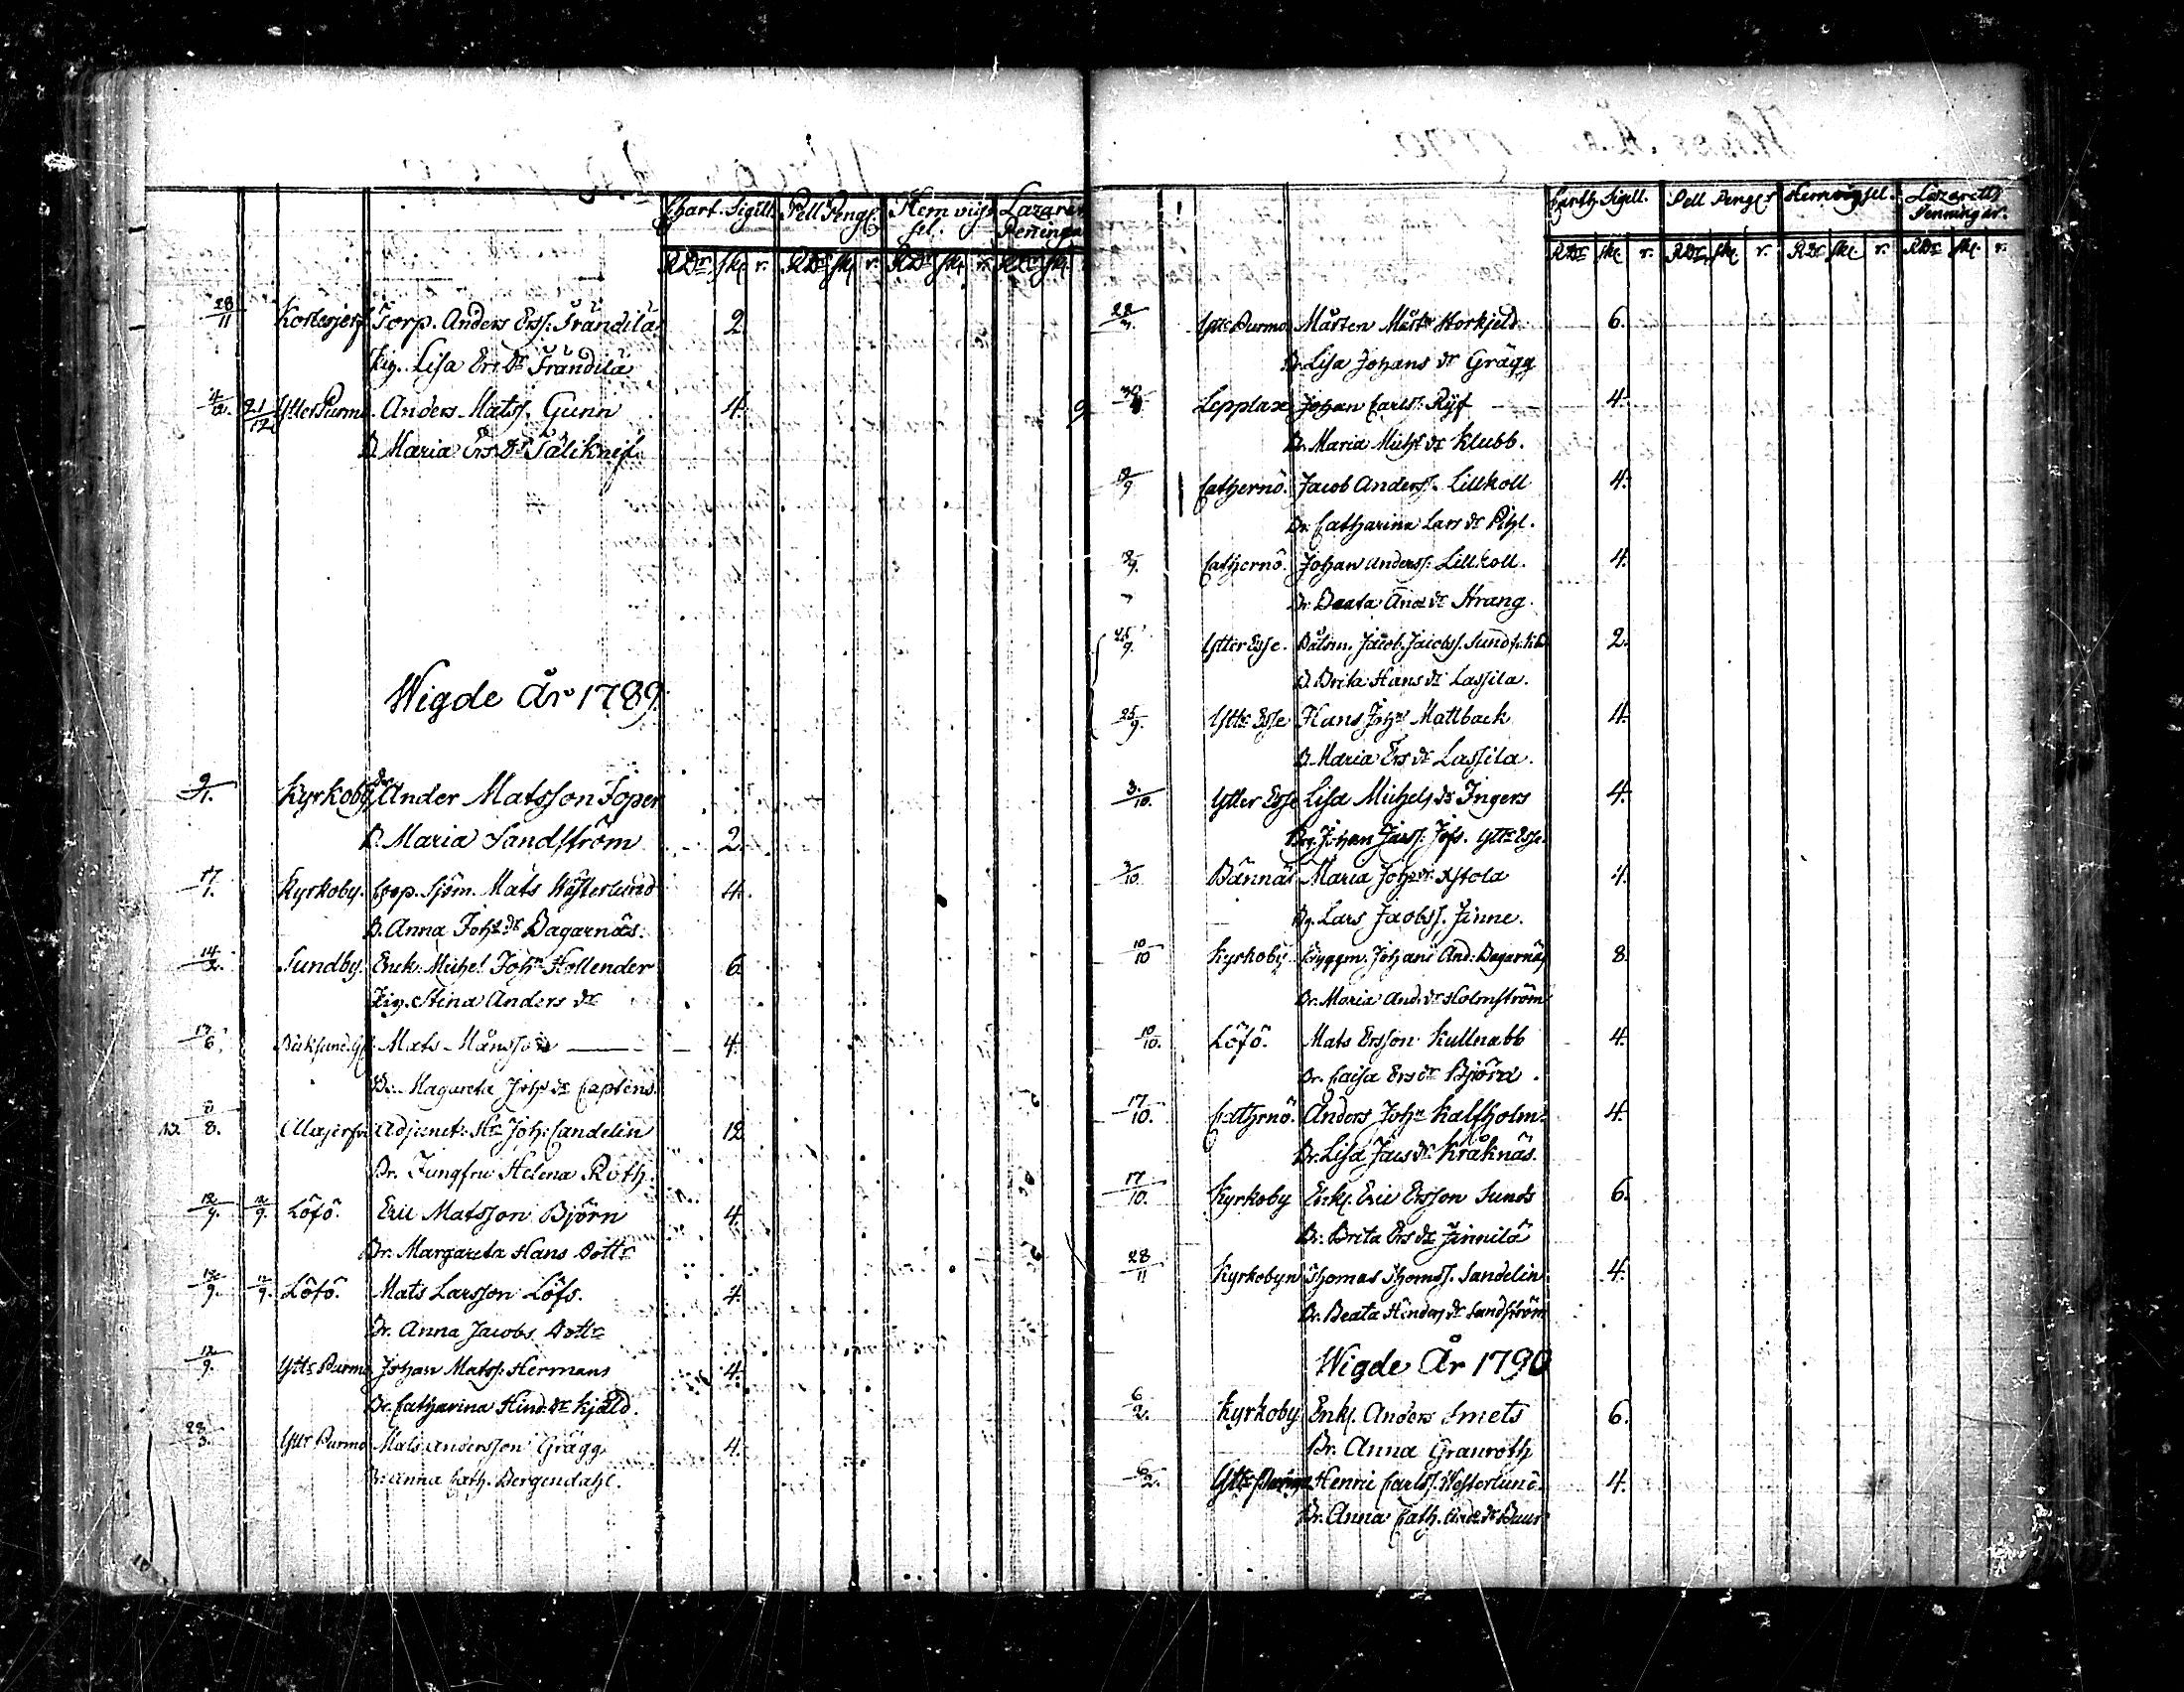 Chart. Sigill. Pell Peng: Hemvijs sel. Lazarett Peningar
RDr sk. r. RDr sk. r. RDr sk. r. RDr sk.
28/11 Torp. Anders Ersf. Frändilä 2.
Pig. Lisa Ers Dr Frändilä
21/12 Ytter Purmo. Anders Matsf. Gunn 4.
B. Maria Ers Dr Täliknif.
Wigde År 1789.
9/1. Kyrkoby Ander Matsson Soper
B. Maria Sandström 2.
17/1. Kyrkoby. Mats Wästerlund 4.
B. Anna Joh: dr Bagarnäs.
14/2. Sundby. Enck. Michel John Hollender 6.
Pig. Stina Anders dr
17/6. Mats Månsson 4.
Br. Magareta Joh. dr Captens.
8. Adjunct. Hr Joh: Candelin 12
Br. Jungfru Helena Roth.
12/9. 12/9. Löfö. Eric Matsson Björn 4.
Br. Margareta Hans Dottr
12/9. 12/9. Löfö. Mats Larsson Löfs. 4.
Br. Anna Jacobs Dottr
12/9. Yttr Purmo Johan Matsf. Hermans 4.
Br. Catharina Hind. dr Kjäld.
Yttr Purmo Mats Andersson Grägg 4.
Br. Anna Cath. Bergendahl.
Carth Sigill. Pell Peng:r Hemvijsel. Lazaretts Penningar.
RDr sk. r. RDr sk. r. RDr sk. r. RDr sk. r.
Yttr Purmo Mårten Mårts Storkjeld 6.
Br. Lisa Johans dr Grägg
Lepplax Johan Carls. Ryf 4.
Br. Maria Mich. dr Klubb.
Cathernö. Jacob Andersf. Lillkoll 4.
Br. Catharina Lars dr Pihl.
Cathernö. Johan Andersf. Lillkoll. 4.
Br. Beata And dr Strang.
25/9. Ytter Esse. Båtsm. Jacob Jacobsf. 2.
B. Brita Hans dr Lassila.
25/9. Yttr Esse Hans Johs Mattback 4.
B. Maria Ers dr Lassila.
3/10. Ytter Esse Lisa Michels dr Ingers 4.
Brg. Johan Jacsf. Jofs. Yttr Esse.
3/10. Bännäs Maria Joh. dr Stola 4.
Bg. Lars Jacobsf. Finne.
10/10 Kyrkoby Byggm. Johan And: Bagarnäs 8.
Br. Maria And. dr Holmström
10/10. Löfö. Mats Ersson Kullnabb 4.
Br. Caisa Ers dr Björn.
17/10. Cathrnö. Anders Johs Kalfholm. 4.
Br. Lisa Jacs dr Kråknäs.
17/10. Kyrkoby Enkl. Eric Ersson Sunds 6.
Br. Brita Ers dr Finnilä
28/11 Kyrkobyn Thomas Thomsf. Sandelin 4.
Br. Beata Hindrs dr Sandström
Wigde År 1790
6/2. Kyrkoby Enkl. Anders Smets 6.
Br. Anna Granroth
6/2. Henric Carlsf. Westerlund. 4.
Br. Anna Cath. And. dr Buur